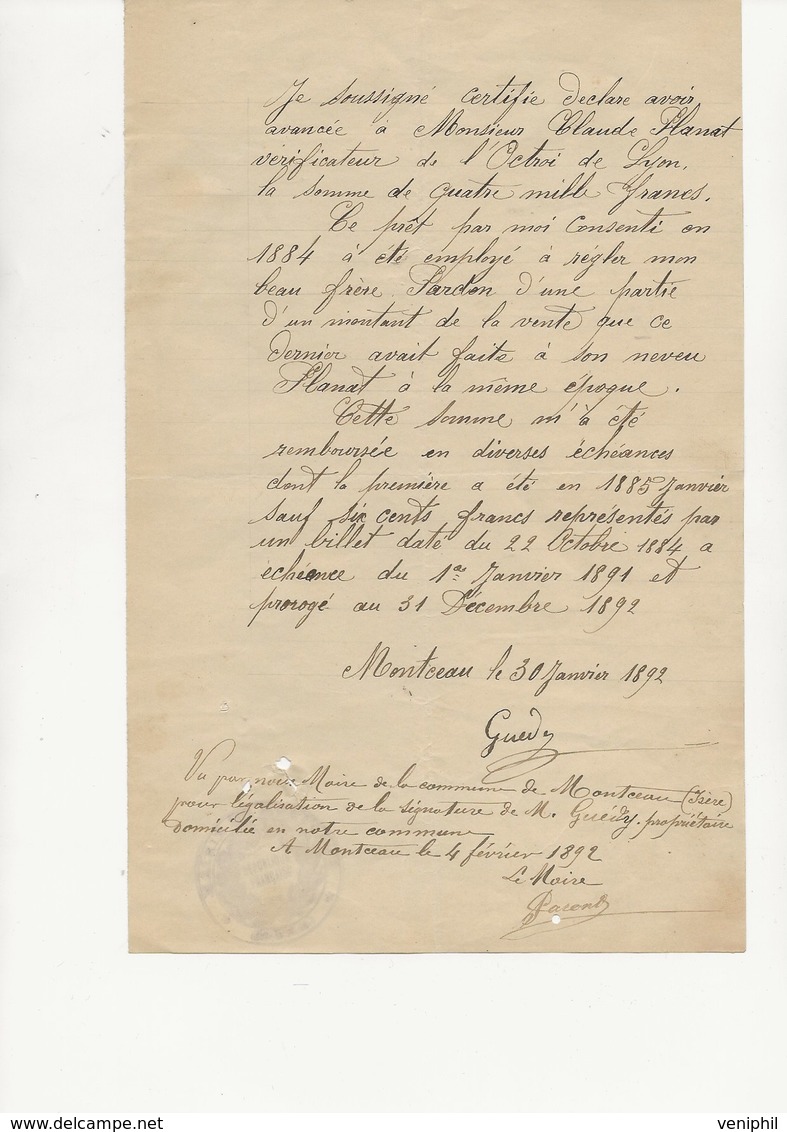 Je soussigné certifie declare avoir
avancée à Monsieur Claude Planat
vérificateur de l'Octroi de Lyon,
la somme de quatre mille francs.
Ce prêt par moi consenti en
1884 à été employé à régler mon
beau frère Sardon d'une partie
d'un montant de la vente que ce
dernier avait faite à son neveu
Planat à la même époque.
Cette somme m'à été
remboursée en diverses échéances
dont la première a été en 1885 Janvier
sauf six cents francs représentés par
un billet daté du 22 Octobre 1884 a
échéance du 1er Janvier 1891 et
prorogé au 31 Décembre 1892
Montceau le 30 Janvier 1892
Guédy
Vu par nous Maire de la commune de Montceau (Isère)
pour légalisation de la signature de M. Guédy, propriétaire
domicilié en notre commune
A Montceau le 4 février 1892
Le Maire
delcampe.net
veniphil